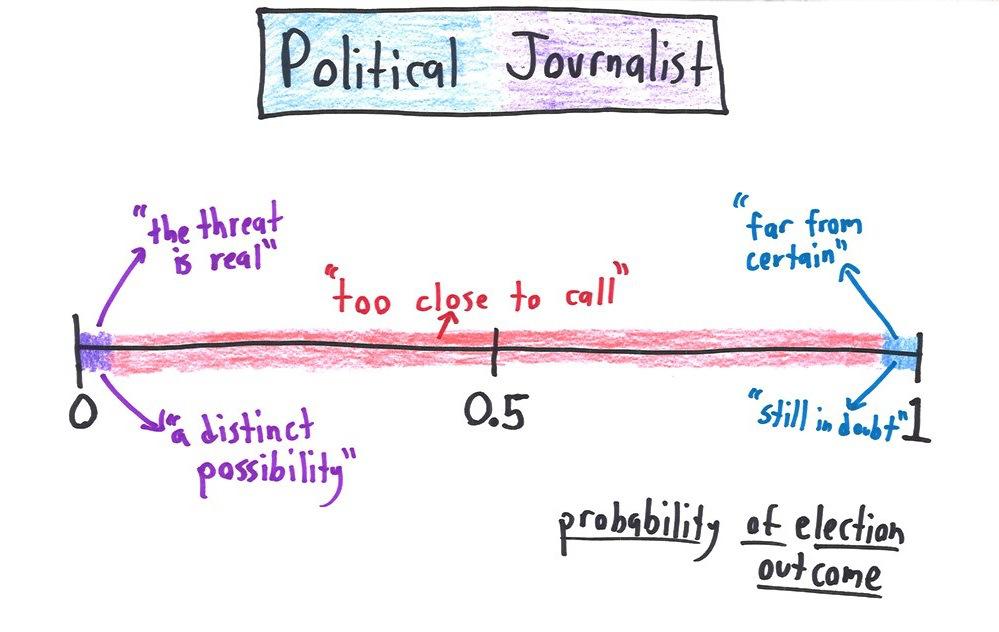 Political Journalist
"the threat
is real"
"far from
certain"
"too close to call"
0
0.5
1
"a distinct
possibility"
"still in doubt"
probability of election
outcome